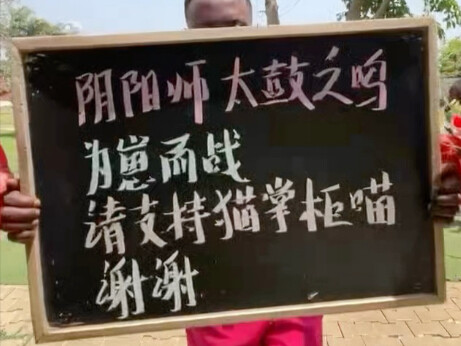 阴阳师 太鼓之鸣
为崽而战
请支持猫掌柜喵
谢谢